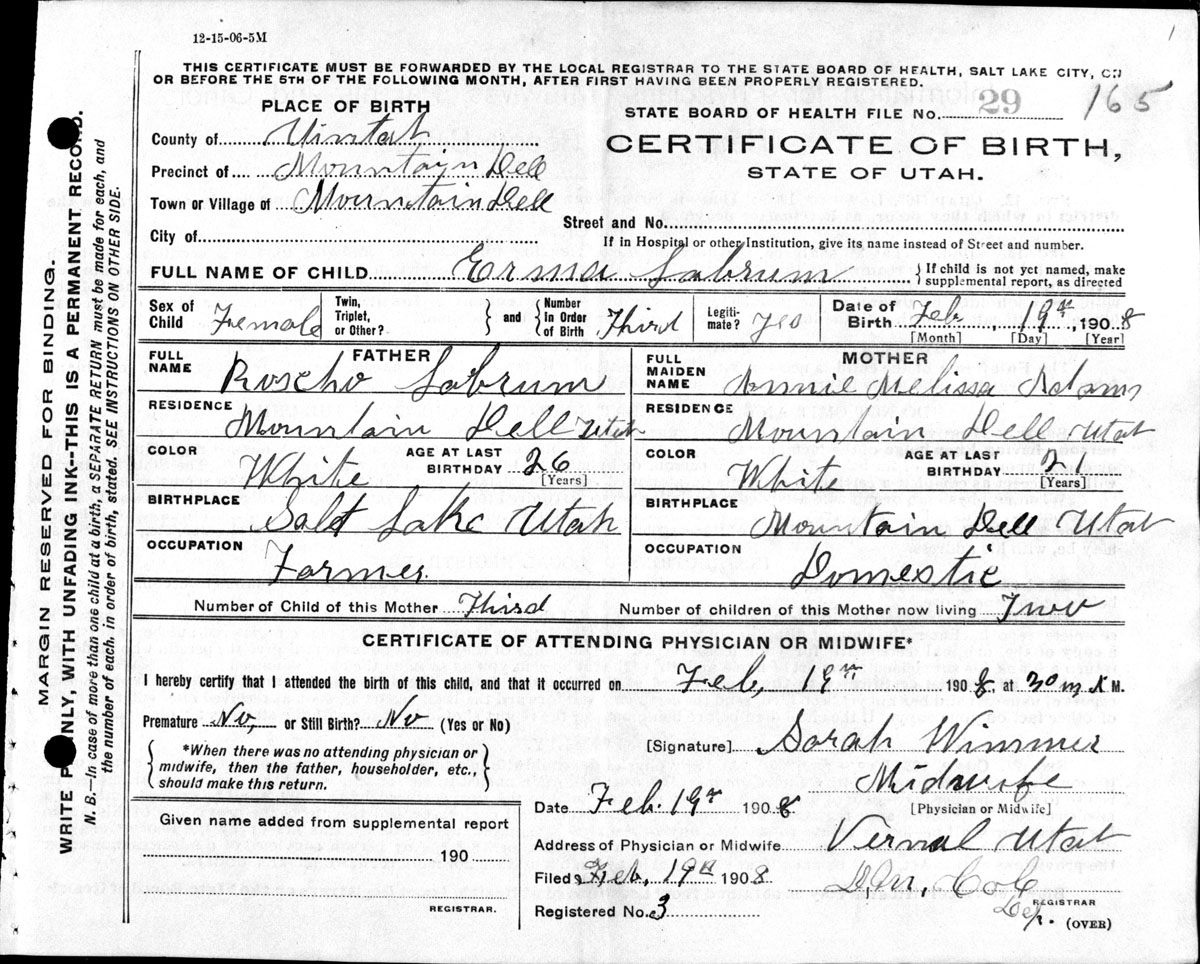 1
12-15-06-5M
THIS CERTIFICATE MUST BE FORWARDED BY THE LOCAL REGISTRAR TO THE STATE BOARD OF HEALTH, SALT LAKE CITY, ON
OR BEFORE THE 5TH OF THE FOLLOWING MONTH, AFTER FIRST HAVING BEEN PROPERLY REGISTERED.
PLACE OF BIRTH
County of Uintah
Precinct of Mountain Dell
Town or Village of Mountain Dell
City of
STATE BOARD OF HEALTH FILE No. 29 165
CERTIFICATE OF BIRTH,
STATE OF UTAH.
Street and No.
If in Hospital or other Institution, give its name instead of Street and number.
FULL NAME OF CHILD Erma Labrum
If child is not yet named, make
supplemental report, as directed
Sex of Child Female
Twin, Triplet, or Other? and Number In Order of Birth Third
Legiti-mate? Yes
Date of Birth Feb, 19th, 1908
[Month] [Day] [Year]
FATHER
FULL NAME Roscho Labrum
RESIDENCE Mountain Dell Utah
COLOR White AGE AT LAST BIRTHDAY 26 [Years]
BIRTHPLACE Salt Lake Utah
OCCUPATION Farmer.
MOTHER
FULL MAIDEN NAME Annie Melissa Adams
RESIDENCE Mountain Dell Utah
COLOR White AGE AT LAST BIRTHDAY 2 [Years]
BIRTHPLACE Mountain Dell Utah
OCCUPATION Domestic
Number of Child of this Mother Third Number of children of this Mother now living Two
CERTIFICATE OF ATTENDING PHYSICIAN OR MIDWIFE*
I hereby certify that I attended the birth of this child, and that it occurred on Feb, 19th 1908 at 30 M.
Premature No, or Still Birth? No (Yes or No)
*When there was no attending physician or
midwife, then the father, householder, etc.,
should make this return.
[Signature] Sarah Wimmer
Midwife
[Physician or Midwife]
Date Feb. 19th 1908
Address of Physician or Midwife Vernal Utah
Filed Feb, 19th 1908
Cole
REGISTRAR
Dep.
Registered No. 3
(OVER)
Given name added from supplemental report
190
REGISTRAR.
MARGIN RESERVED FOR BINDING.
WRITE PLAINLY, WITH UNFADING INK--THIS IS A PERMANENT RECORD.
N. B.—In case of more than one child at a birth, a SEPARATE RETURN must be made for each, and
the number of each, in order of birth, stated. SEE INSTRUCTIONS ON OTHER SIDE.